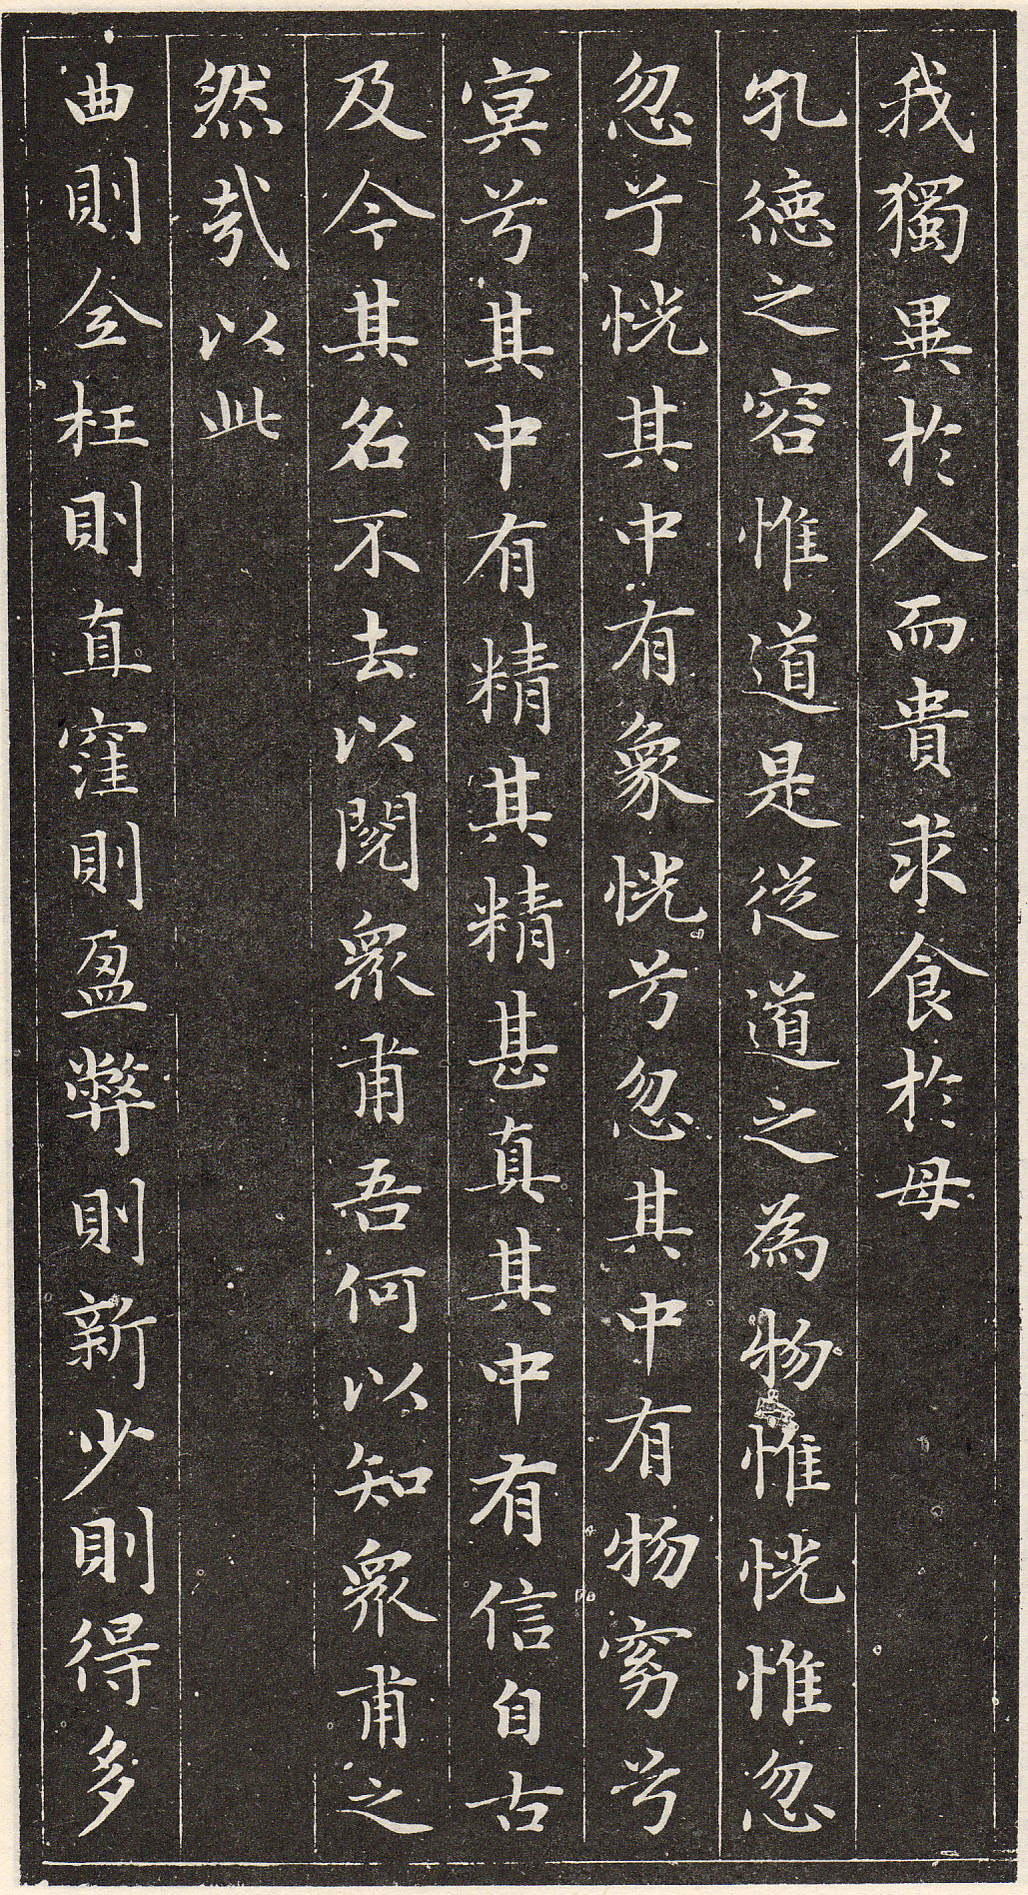 我獨異於人而貴求食於母
孔德之容惟道是從道之為物惟恍惟忽
忽兮恍其中有象恍兮忽其中有物窈兮
冥兮其中有精其精甚真其中有信自古
及今其名不去以閱衆甫吾何以知衆甫之
然哉以此
曲則全枉則直窪則盈弊則新少則得多